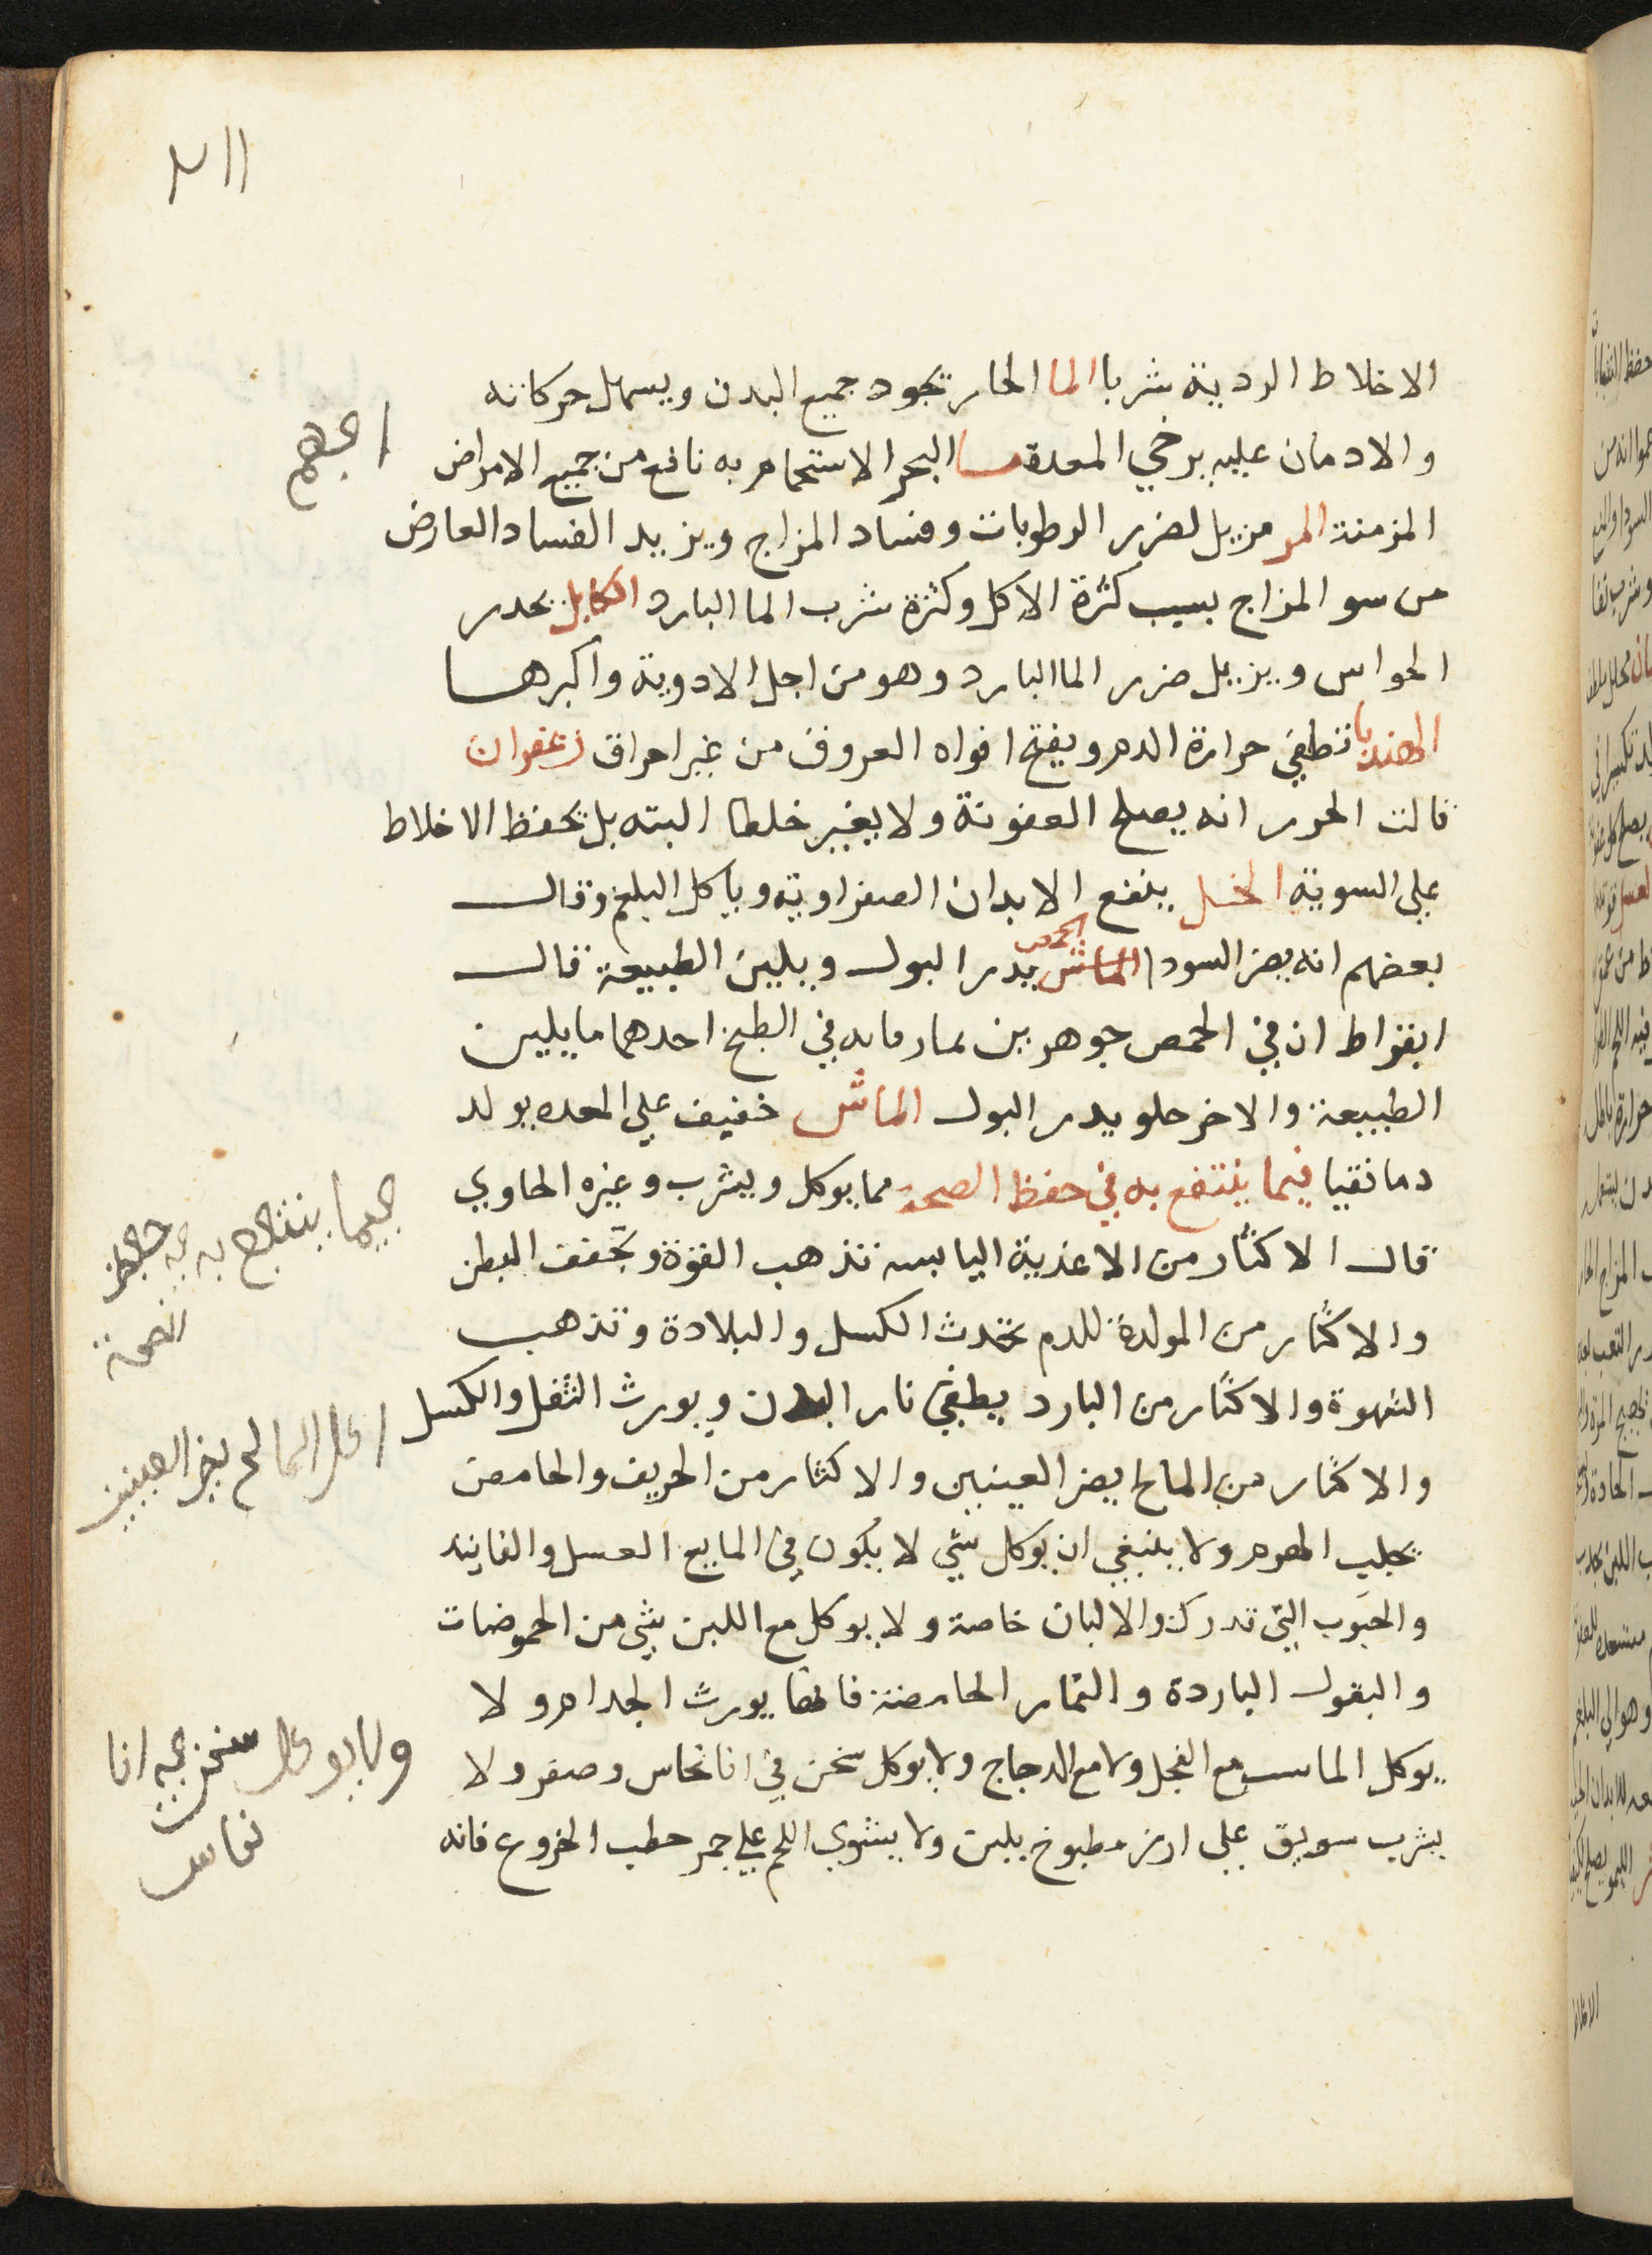 ٢١١
الاخلاط الردية شربا الما الحار تجود جميع البدن ويسهل حركاته
والادمان عليه يرخي المعدة ما البحر الاستحمام به نافع من جميع الامراض
المزمنة المر مزيل لضرر الرطوبات وفساد المزاج ويزيد الفساد العارض
من سو المزاج بسبب كثرة الاكل وكثرة شرب الما البارد الكابلي يحدر
الحواس ويزيل ضرر الما البارد وهو من اجل الادوية واكبرها
الهندبا تطفي حرارة الدم ويفتح افواه العروق من غير احراق زعفران
قالت الحور انه يصلح العفونة ولا يغير خلطا البته بل تحفظ الاخلاط
علي السوية الخل ينفع الابدان الصفراوية وياكل البلغم وقال
بعضهم انه يضر السودا الماش الحمص يدر البول ويلين الطبيعة قال
ابقراط ان في الحمص جوهرين يفارقانه في الطبخ احدهما ما يلين
الطبيعة والاخر حلو يدر البول الماش خفيف علي المعده يولد
دما نقيا فيما ينتفع به في حفظ الصحة مما يوكل ويشرب وغيره الحاوي
قال الاكثار من الاغذية اليابسه تذهب القوة وتجفف البطن
والاكثار من المولدة للدم تحدث الكسل والبلادة وتذهب
الشهوة والاكثار من البارد يطفي نار البدن ويورث الثقل والكسل
والاكثار من المالح يضر العينين والاكثار من الحريف والحامض
تجلب الهرم ولا ينبغي ان يوكل شي لا يكون في المايع العسل والفانيد
والحبوب التي تدرك والالبان خاصة ولا يوكل مع اللبن شي من الحموضات
والبقول الباردة والثمار الحامضة فانها يورث الجدام ولا
يوكل الماست مع الفجل ولا مع الدجاج ولا يوكل سخن في انا نحاس وصفر ولا
يشرب سويق علي ارز مطبوخ بلبن ولا يشوي اللحم علي جمر حطب الخروع فانه
فيما ينتفع به في حفظ
الصحة
اكل المالح يضر العينين
ولا يوكل سخن في انا
نحاس